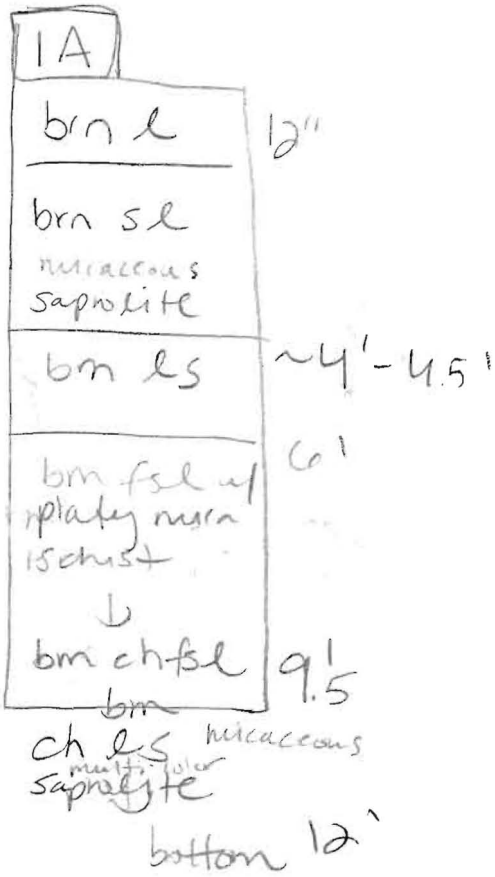 1A
brn l 12"
brn sl
micaceous
saprolite
brn ls ~4'-4.5'
6'
brn fsl w/
platey mica
schist
↓
brn chfsl 9.5'
brn
ch ls micaceous
multicolor
saprolite
bottom 12'